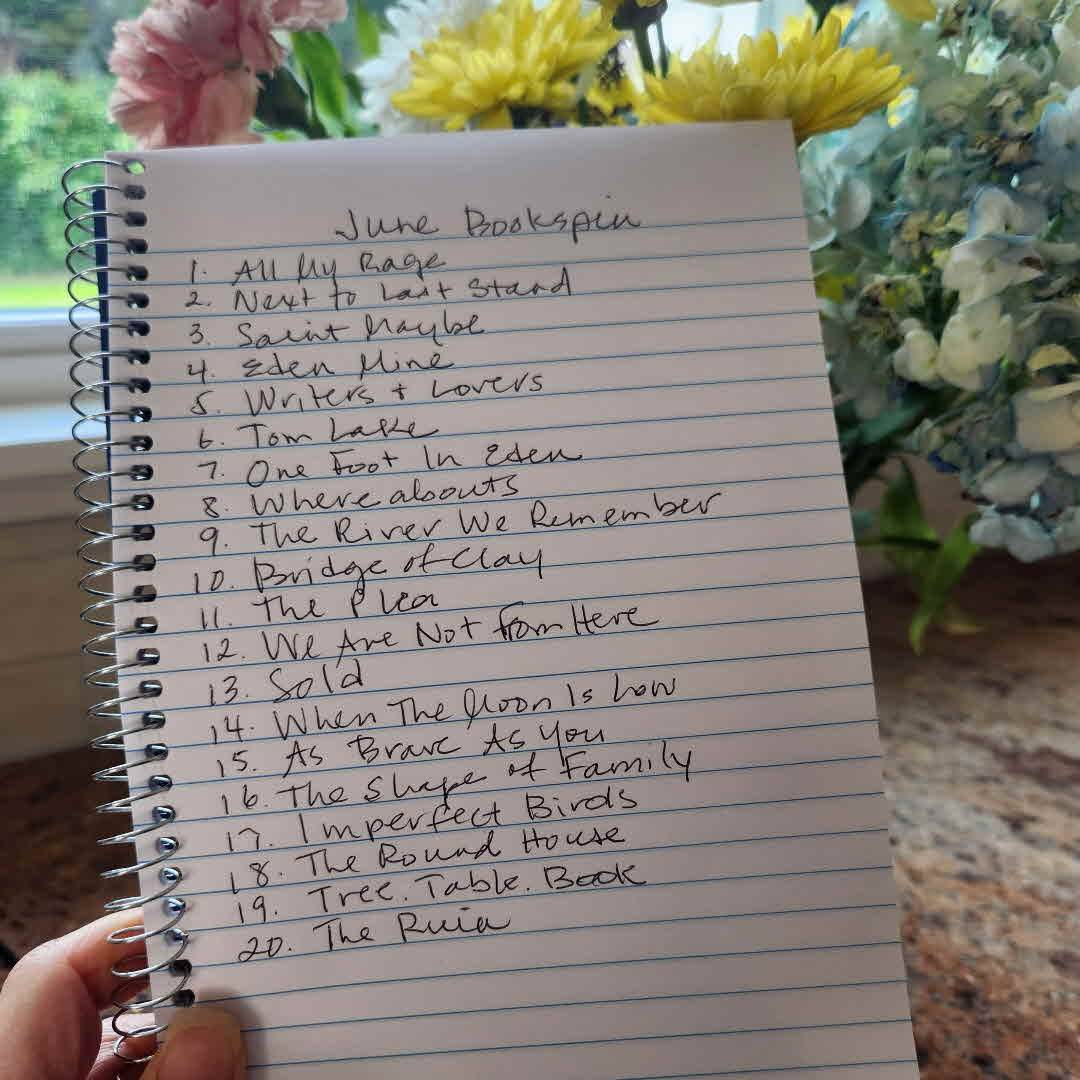 June Bookspin
1. All My Rage
2. Next to Last Stand
3. Saint Maybe
4. Eden Mine
5. Writers + Lovers
6. Tom Lake
7. One Foot In Eden
8. Whereabouts
9. The River We Remember
10. Bridge of Clay
11. The Plea
12. We Are Not from Here
13. Sold
14. When The Moon Is Low
15. As Brave As You
16. The Shape of Family
17. Imperfect Birds
18. The Round House
19. Tree. Table. Book
20. The Ruin